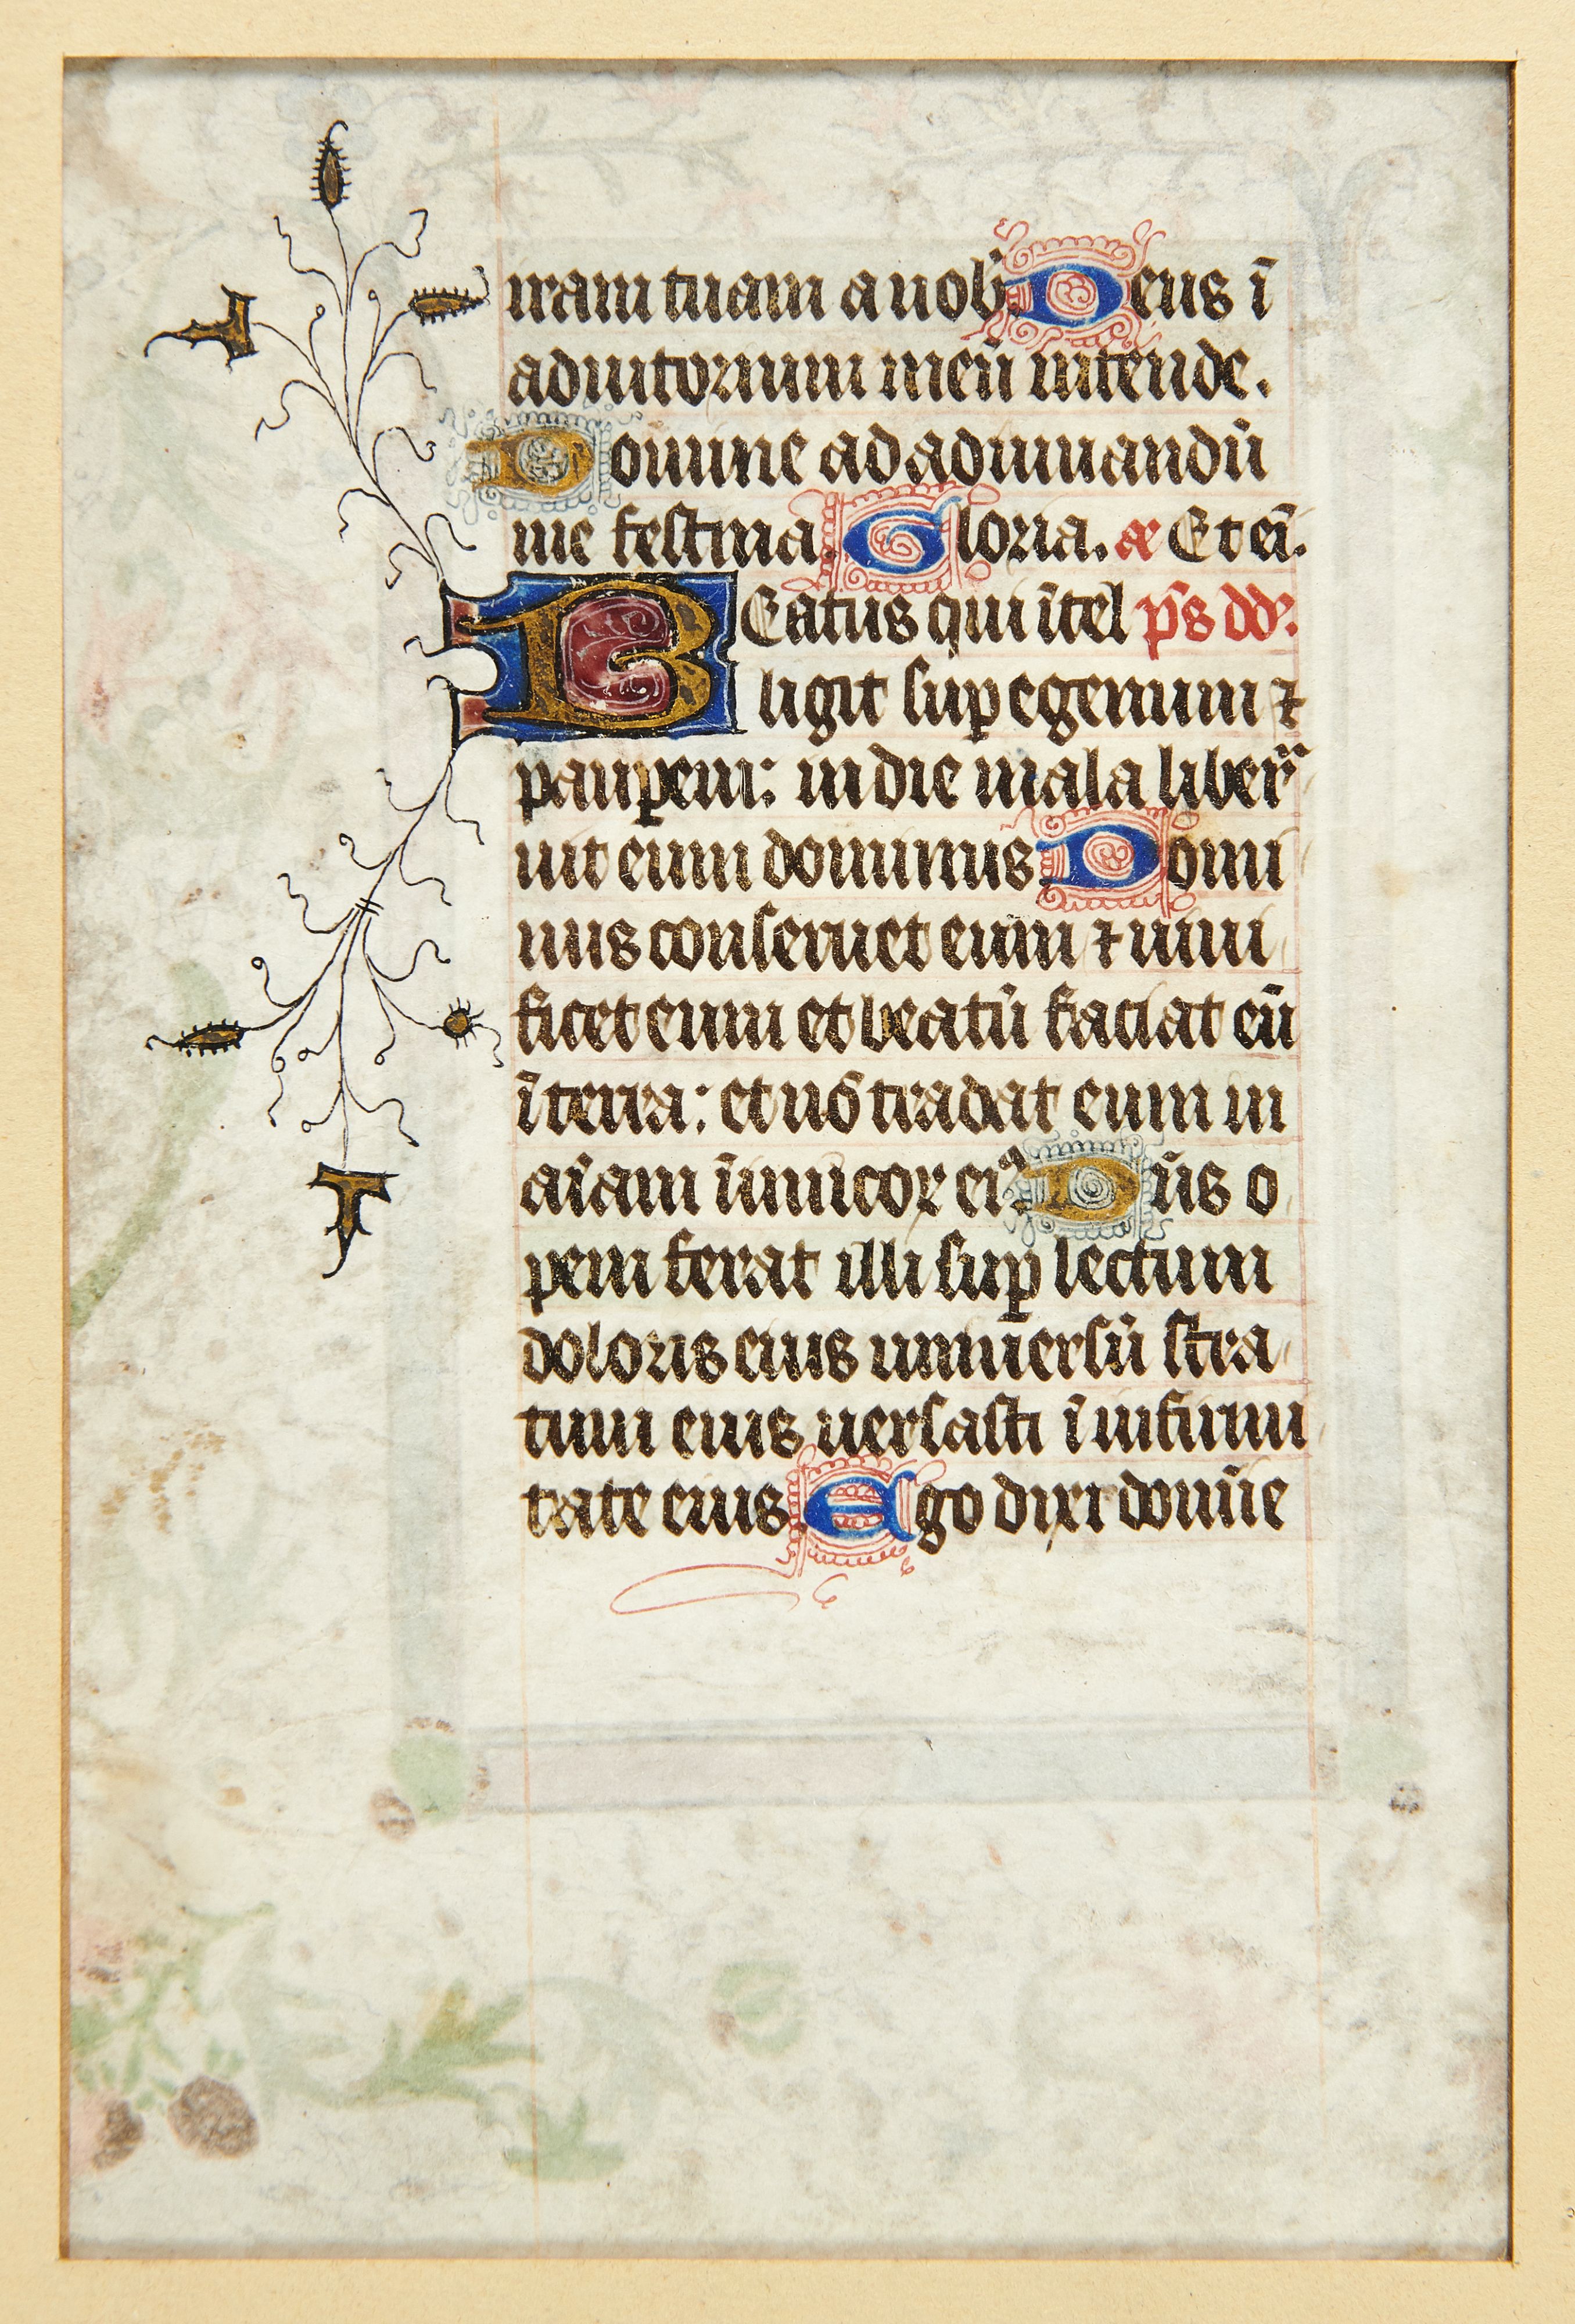 iram tuam a nob̄. Deus ī
adiutorium meū intende.
Domine ad adiuuandū
me festina. Gloria. æ Et eī.
BEatus qui ītel p̄s dd̄.
ligit sup egenum ⁊
pauꝑem: in die mala liberᷓ
uit eum dominus. Domi
nus conseruet eum ⁊ uiui
ficet eum et beatū faciat eū
ī terra: et nō tradat eum in
aīam īimicoꝝ eiꝰ. Dn̄s o
pem ferat illi suꝑ lectum
doloris eius uniuersū stra
tum eius uersasti ī infirmi
tate eius. Ego dixi domīe